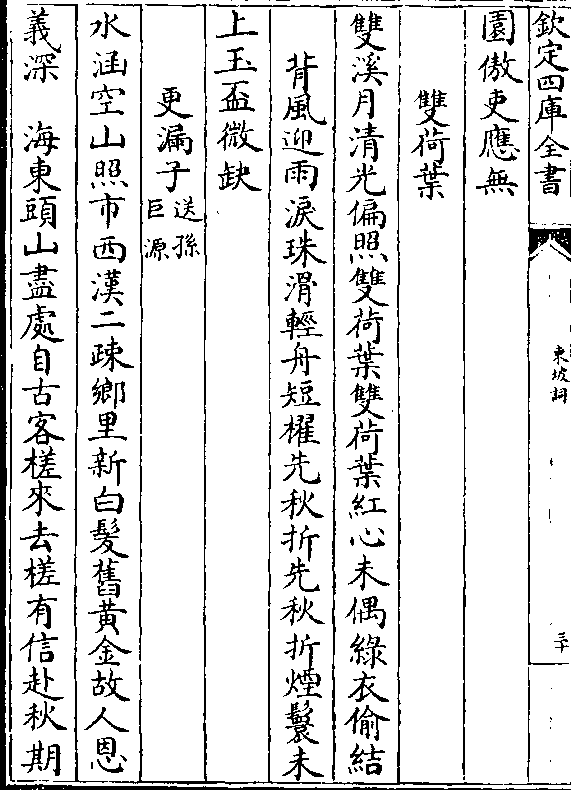 欽定四庫全書
東坡詞
三十
園傲吏應無
雙荷葉
雙溪月清光偏照雙荷葉雙荷葉紅心未偶綠衣偷結
背風迎雨淚珠滑輕舟短櫂先秋折先秋折煙鬟未
上玉盃微缺
更漏子送孫巨源
水涵空山照市西漢二疎鄉里新白髮舊黃金故人恩
義深 海東頭山盡處自古客槎來去槎有信赴秋期